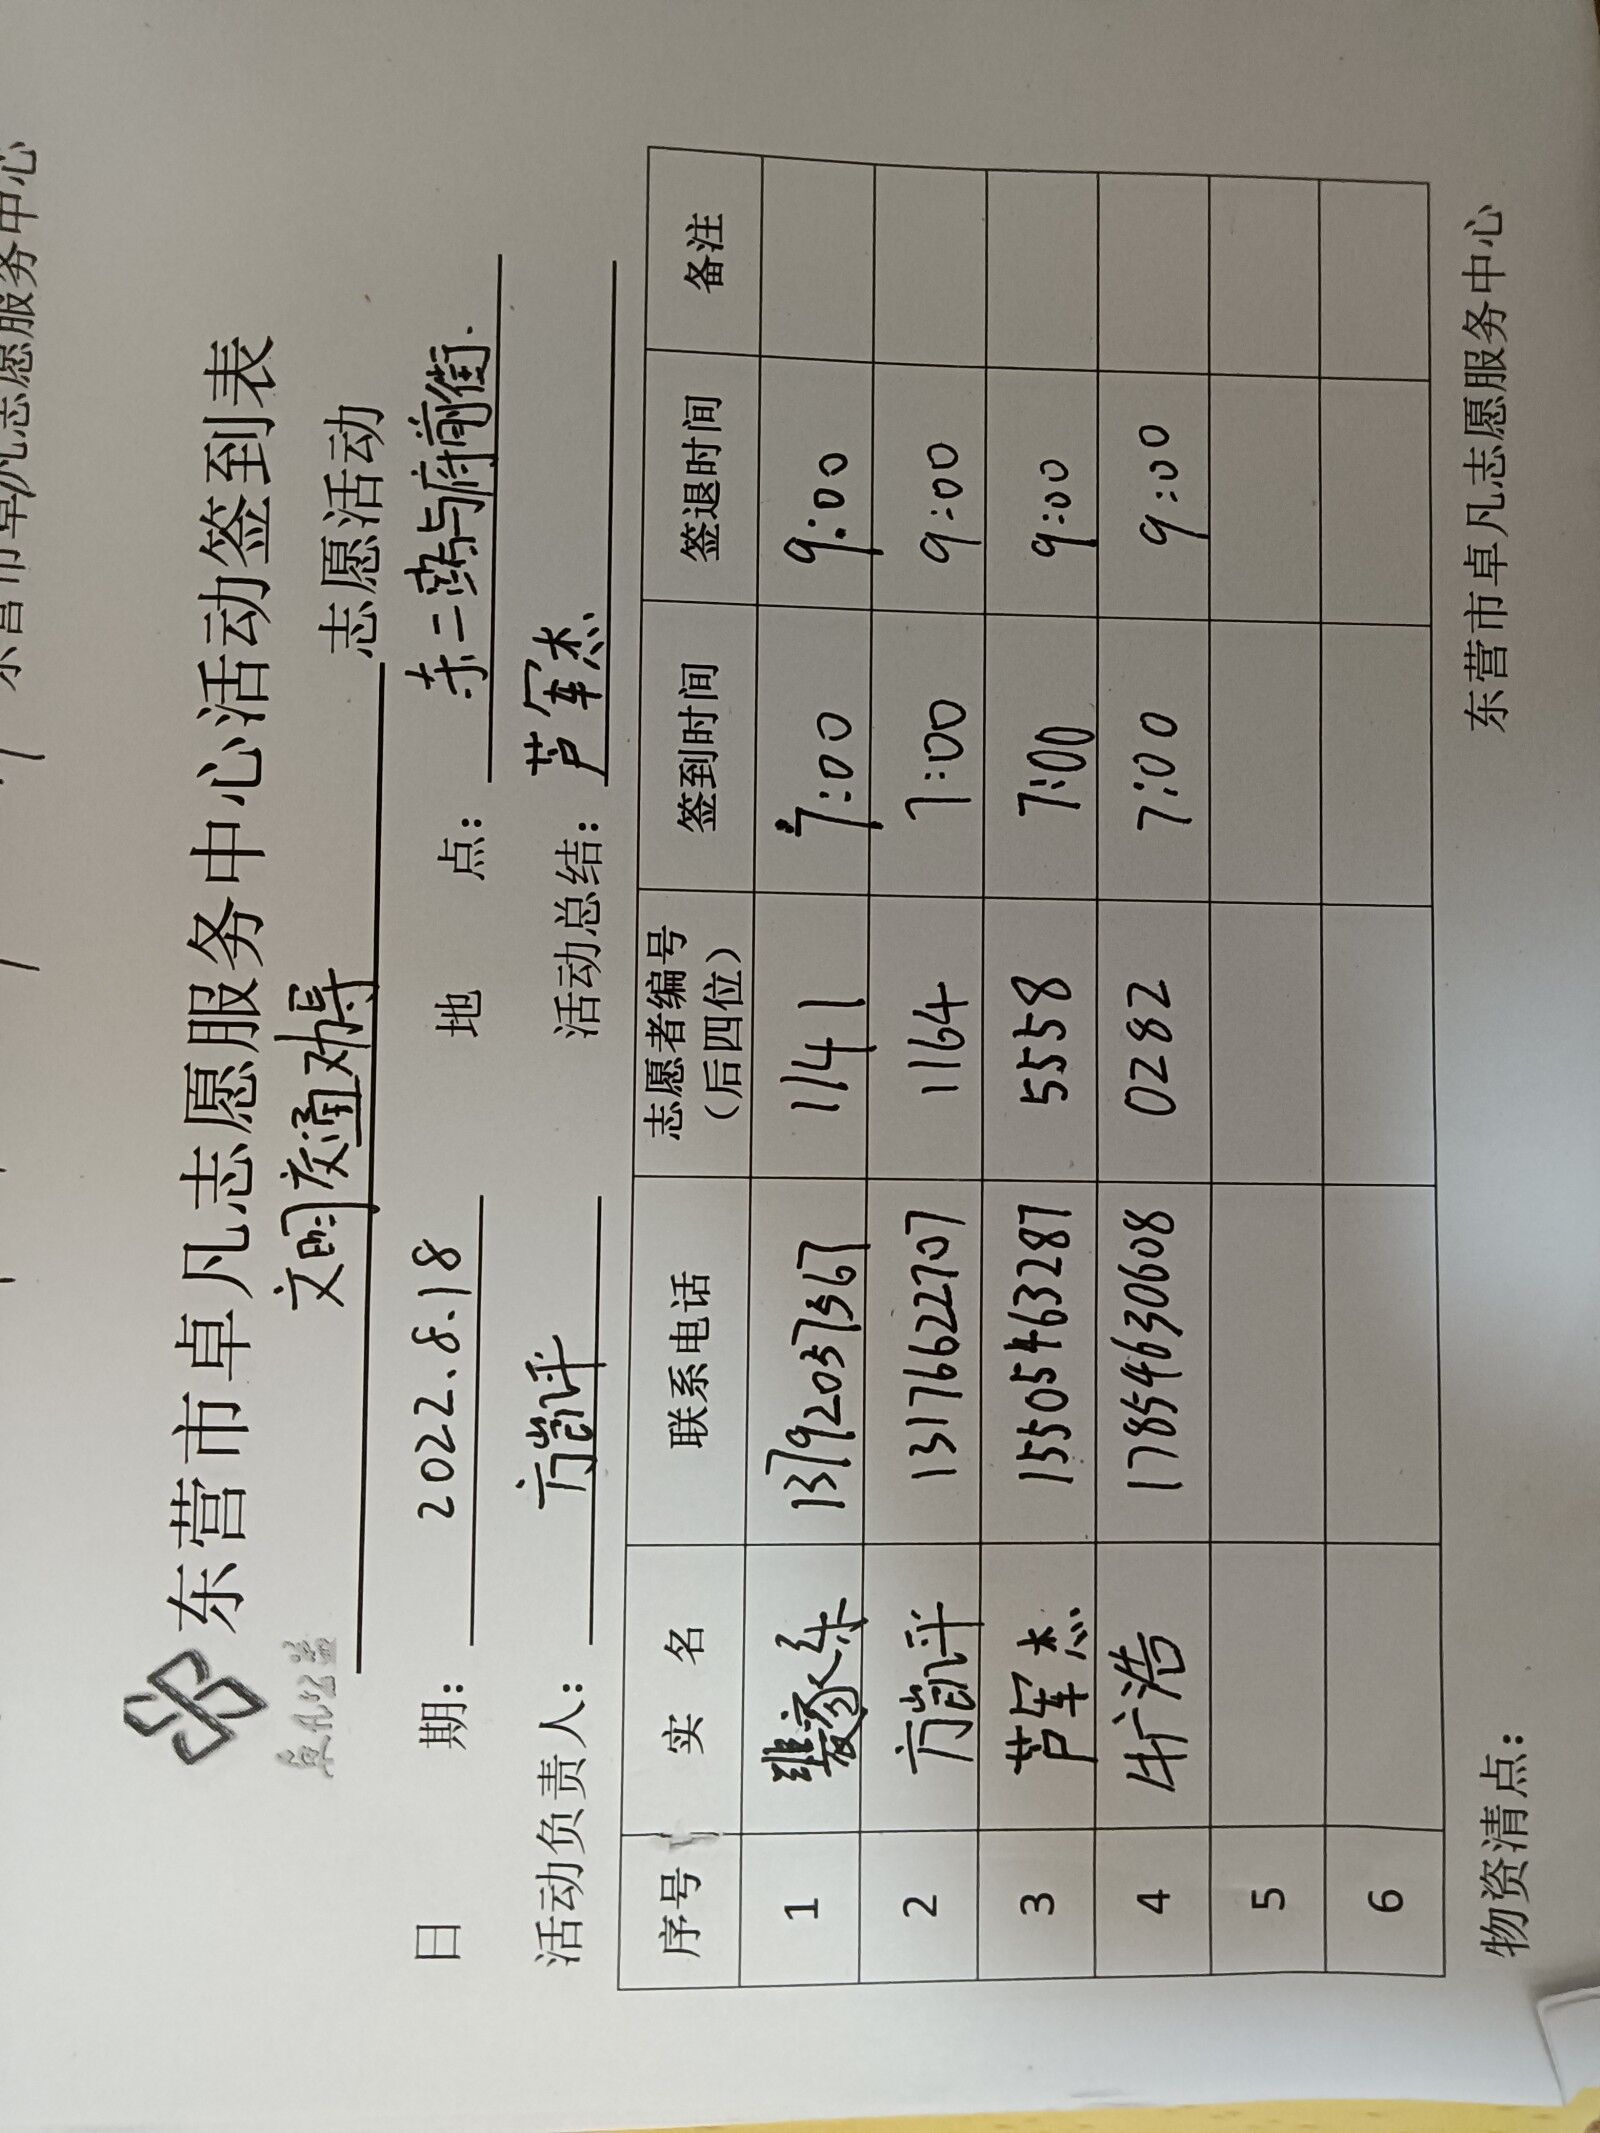 东营市卓凡志愿服务中心
东营市卓凡志愿服务中心活动签到表
文明交通劝导 志愿活动
日 期: 2022.8.18 地 点: 东二路与府前街.
活动负责人: 方凯评 活动总结: 芦军杰
序号 实 名 联系电话 志愿者编号（后四位） 签到时间 签退时间 备注
1 13792057367 1141 7:00 9:00
2 方凯评 13176622707 1164 7:00 9:00
3 芦军杰 15505463287 5558 7:00 9:00
4 牛广浩 17854630608 0282 7:00 9:00
5
6
物资清点: 东营市卓凡志愿服务中心